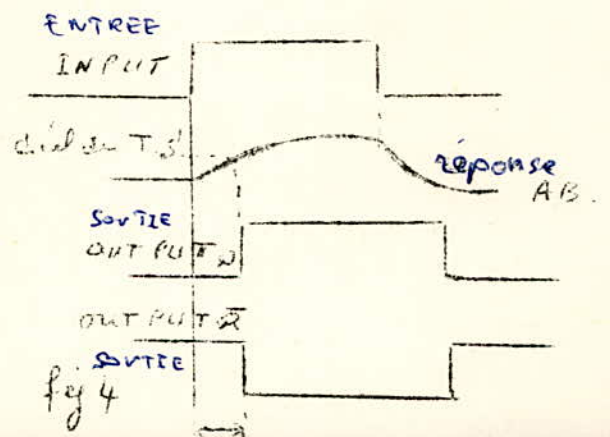 ENTREE
INPUT
réponse
AB.
SORTIE
OUTPUT
OUTPUT
SORTIE
fig 4